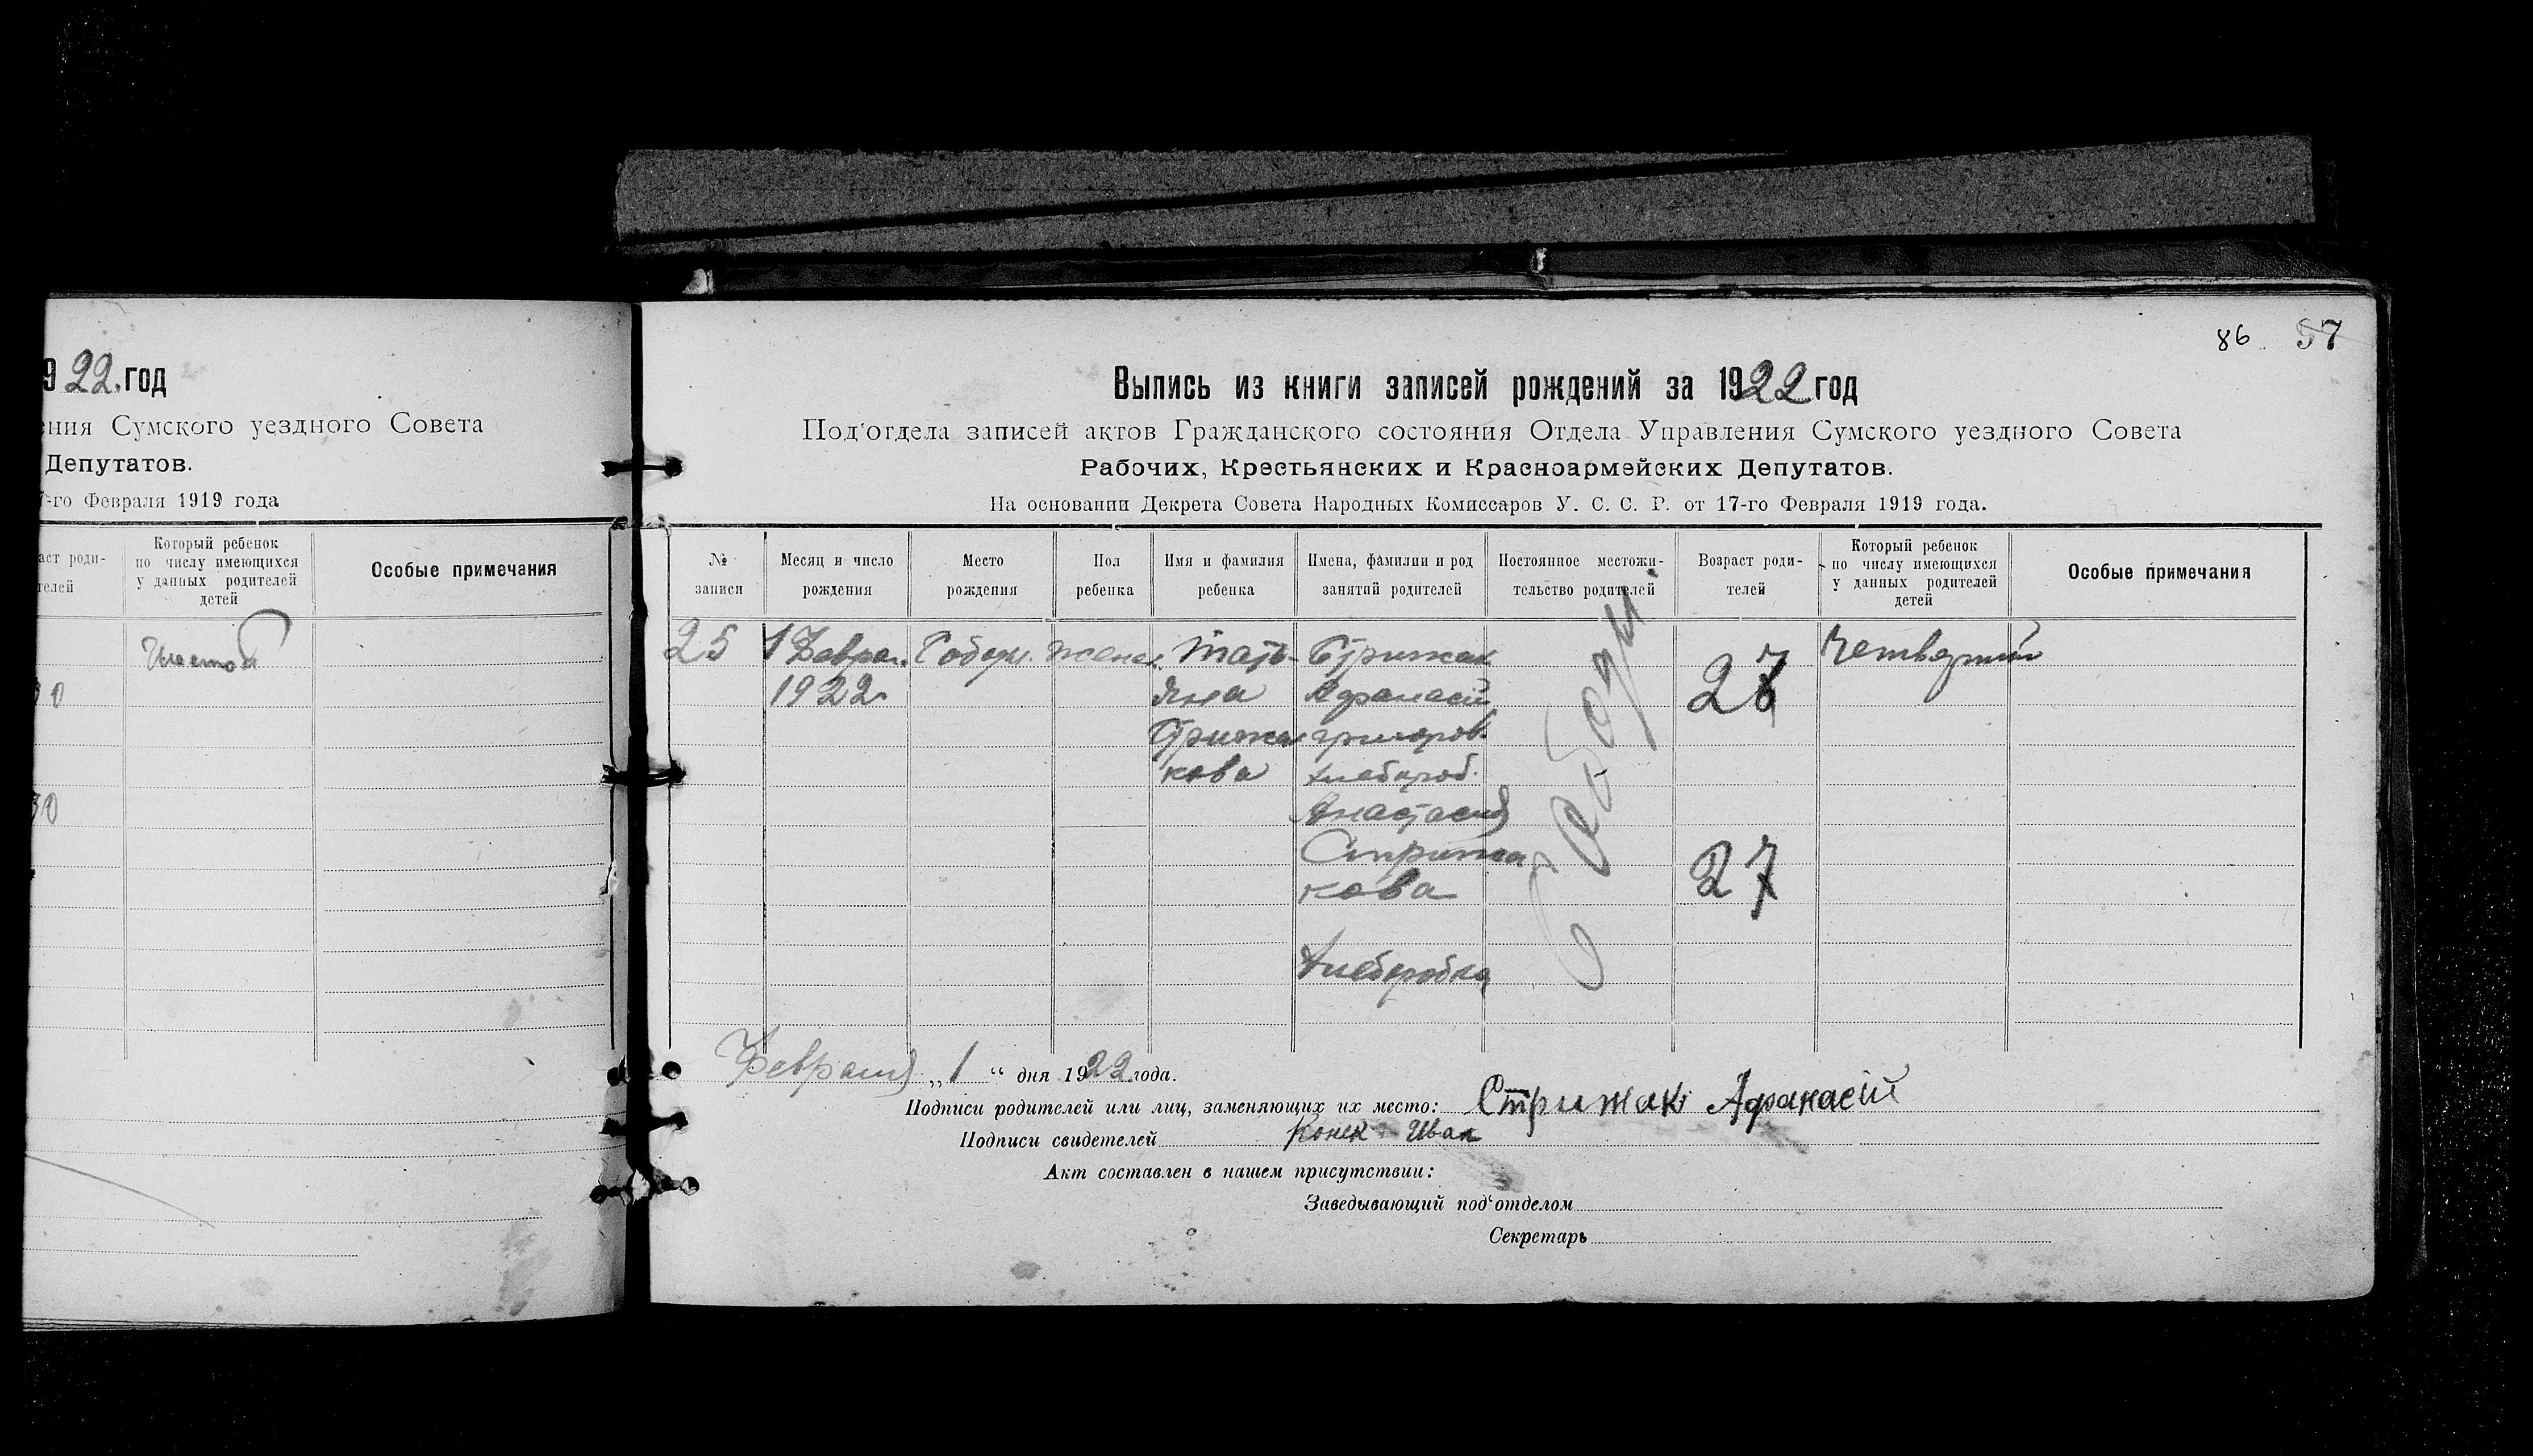 9 22 год
ения Сумского уездного Совета
Депутатов.
7-го Февраля 1919 года
аст роди-
телей
Который ребенок
по числу имеющихся
у данных родителей
детей
Особые примечания
Шестой
30
30
86 57
Выпись из книги записей рождений за 1922 год
Под‘отдела записей актов Гражданского состояния Отдела Управления Сумского уездного Совета
Рабочих, Крестьянских и Красноармейских Депутатов.
На основании Декрета Совета Народных Комиссаров У. С. С. Р. от 17-го Февраля 1919 года.
№
записи
Месяц и число
рождения
Место
рождения
Пол
ребенка
Имя и фамилия
ребенка
Имена, фамилии и род
занятий родителей
Постоянное местожи-
тельство родителей
Возраст роди-
телей
Который ребенок
по числу имеющихся
у данных родителей
детей
Особые примечания
25
1 Февра.
1922
женск.
Тать-
яна
Стрижа
кова
Стрижак
Афанасій
григоров.
хлебороб.
Анастасия
Стрижа
кова
хлеборобка
27
27
четвертий
Февраля „1“ дня 1922 года.
Подписи родителей или лиц, заменяющих их место: Стрижак Афанасій
Подписи свидетелей Конек Иван
Акт составлен в нашем присутствии:
Заведывающий под‘отделом
Секретарь